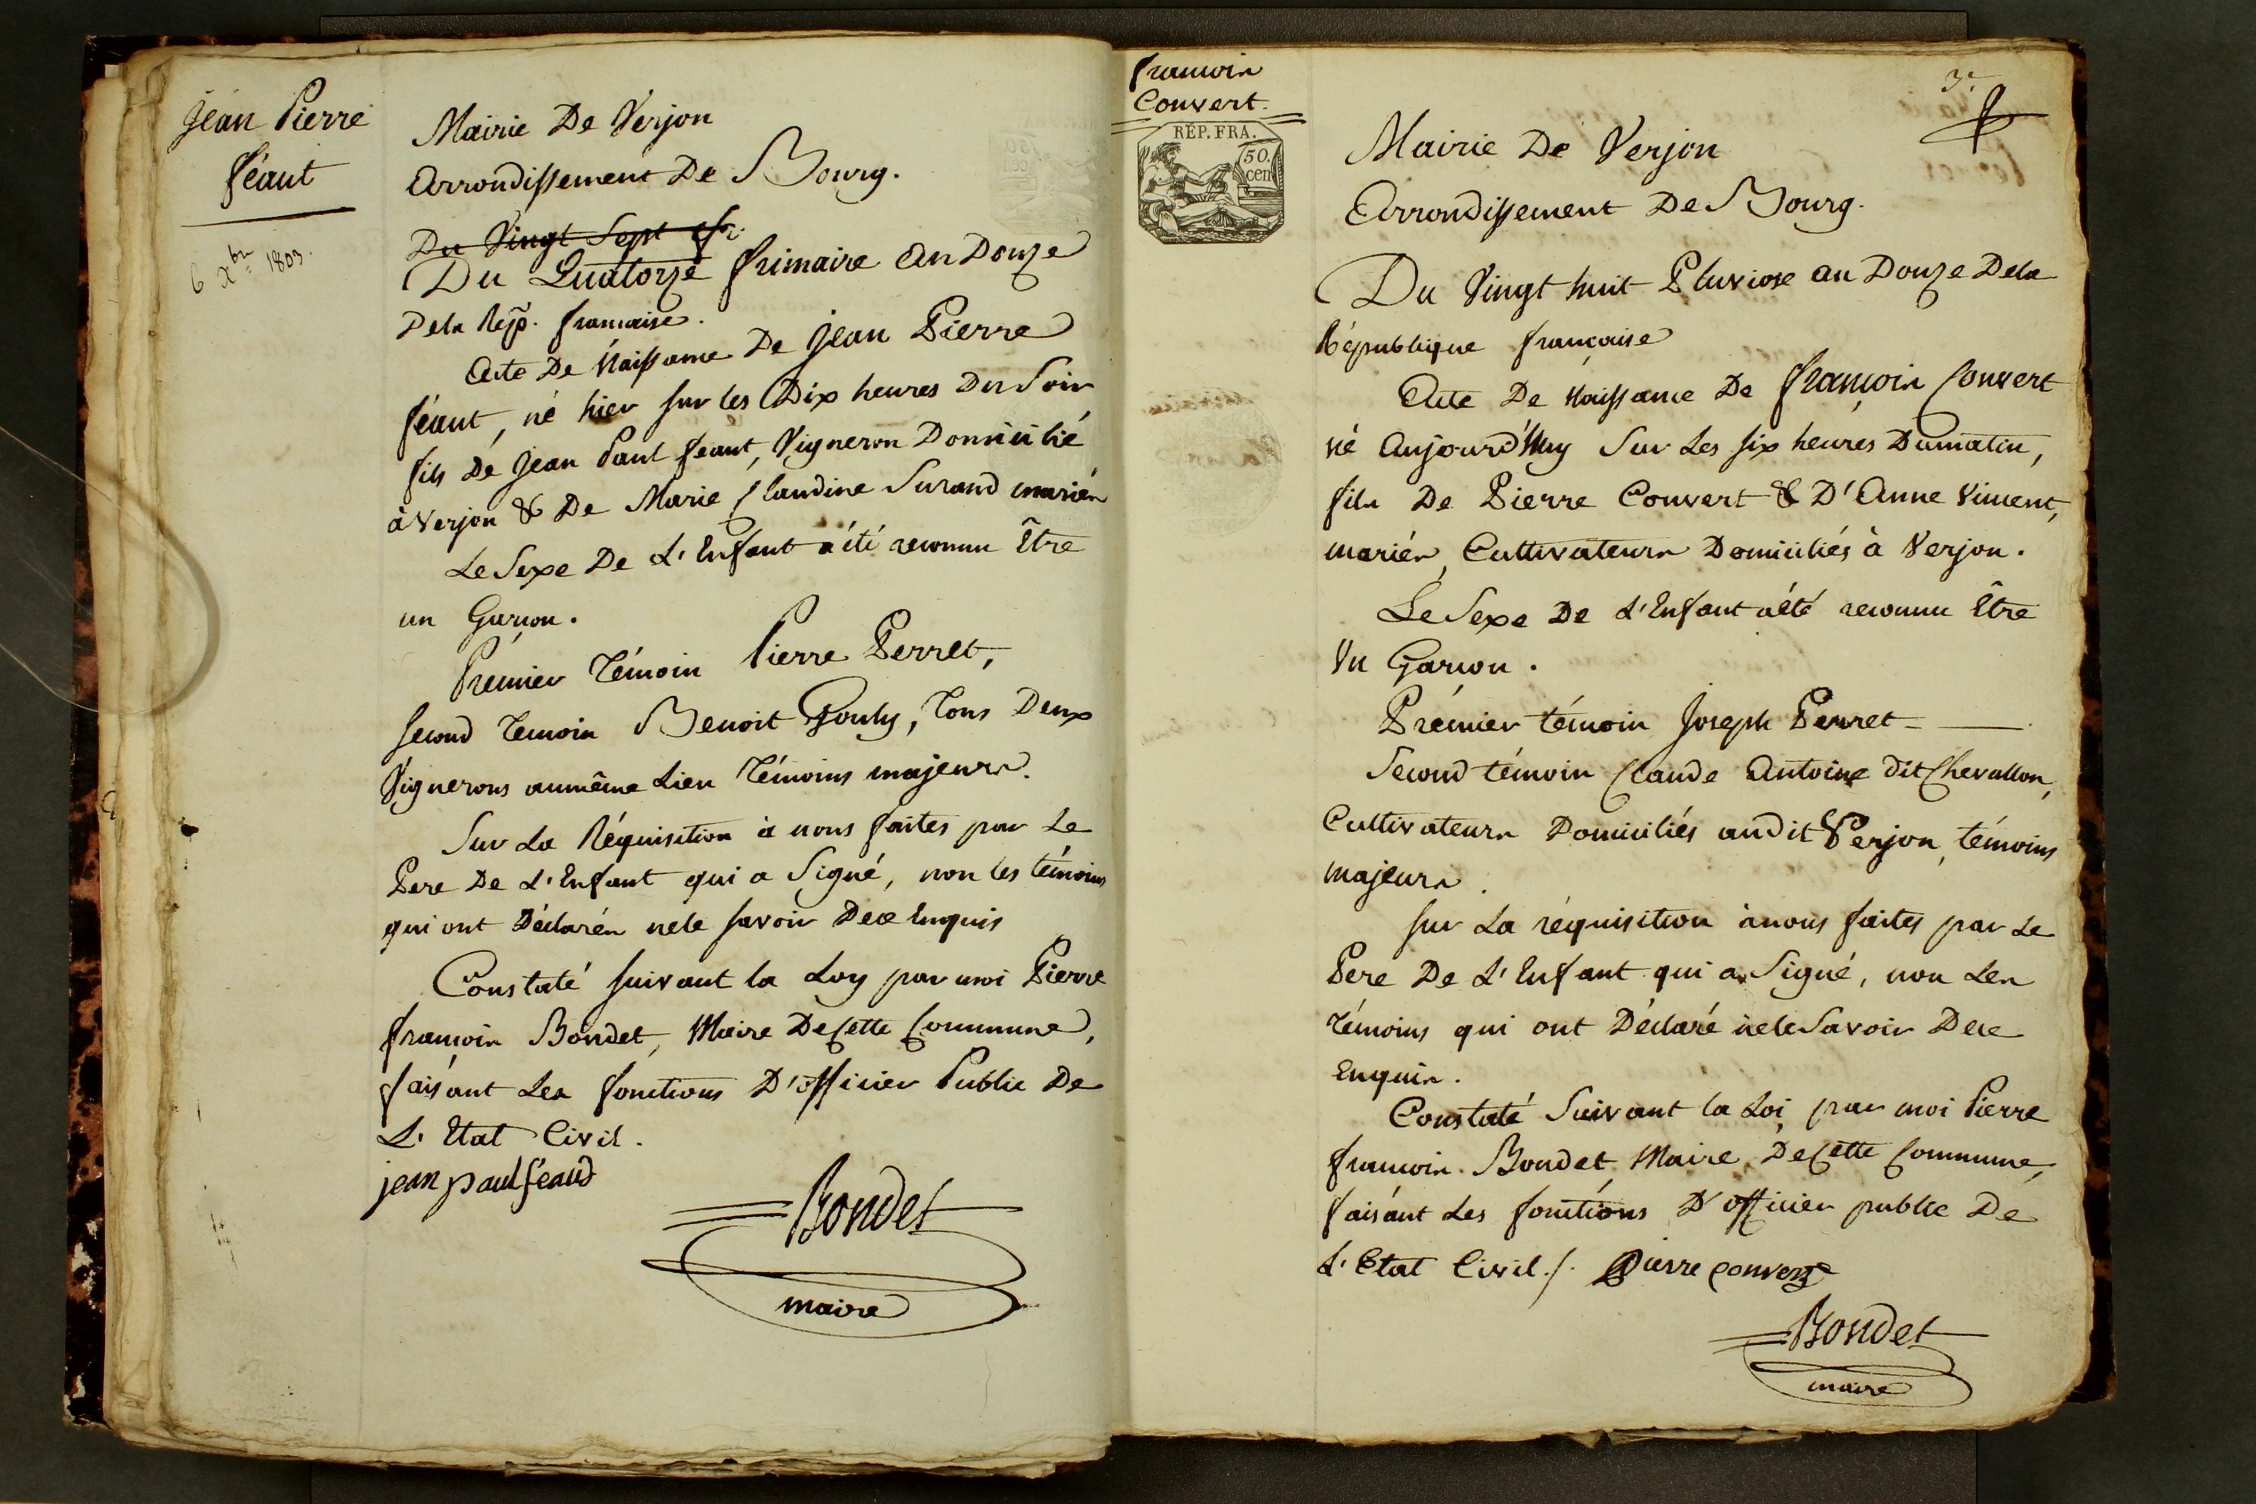 Jean Pierre
féaut
6 xbre 1803.
Mairie De Verjon
Arrondissement De Bourg.
Du Vingt Sept
Du Quatorze frimaire an Douze
De la Rép. francaise.
Acte De Naissance De Jean Pierre
féaut, né hier sur les Dix heures Du Soir
fils De Jean Paul feaut, Vigneron Domicilié
à Verjon & De Marie Claudine Surand mariés
Le Sexe De L'Enfant a été reconnu Être
un Garçon.
Prémier Témoin Pierre Perret,
Second Temoin Benoit Gouly, Tous Deux
Vignerons au même Lieu Témoins majeurs.
Sur La Réquisition à nous faites par Le
Pere De L'Enfant qui a Signé, non les témoins
qui ont Déclarés ne le savoir De ce Enquis
Constaté suivant la Loy par moi Pierre
françois Bondet, Maire De Cette Commune,
faisant Les fonctions D'officier Public De
L'Etat Civil.
jean paul feaud
Bondet
maire
françois
Convert.
RÉP. FRA.
50.
cen
3e
Mairie De Verjon
Arrondissement De Bourg.
Du Vingt huit Pluviose an Douze De la
République française
Acte De Naissance De françois Convert
né Aujourd'Huy Sur Les six heures Du matin,
fils De Pierre Convert & D'Anne Vincent,
mariés, Cultivateurs Domiciliés à Verjon.
Le Sexe De L'Enfant a été reconnu Être
Un Garçon.
Prémier témoin Joseph Perret
Second témoin Claude Antoine dit Chevallon,
Cultivateurs Domiciliés audit Verjon, témoins
majeurs.
Sur La réquisition à nous faites par Le
Pere De L'Enfant qui a Signé, non Les
Témoins qui ont Déclaré ne le Savoir De ce
Enquis.
Constaté Suivant la Loi, par moi Pierre
françois Bondet, Maire De Cette Commune,
faisant Les fonctions D'officier public De
L'Etat Civil./. Pierre convert
Bondet
maire